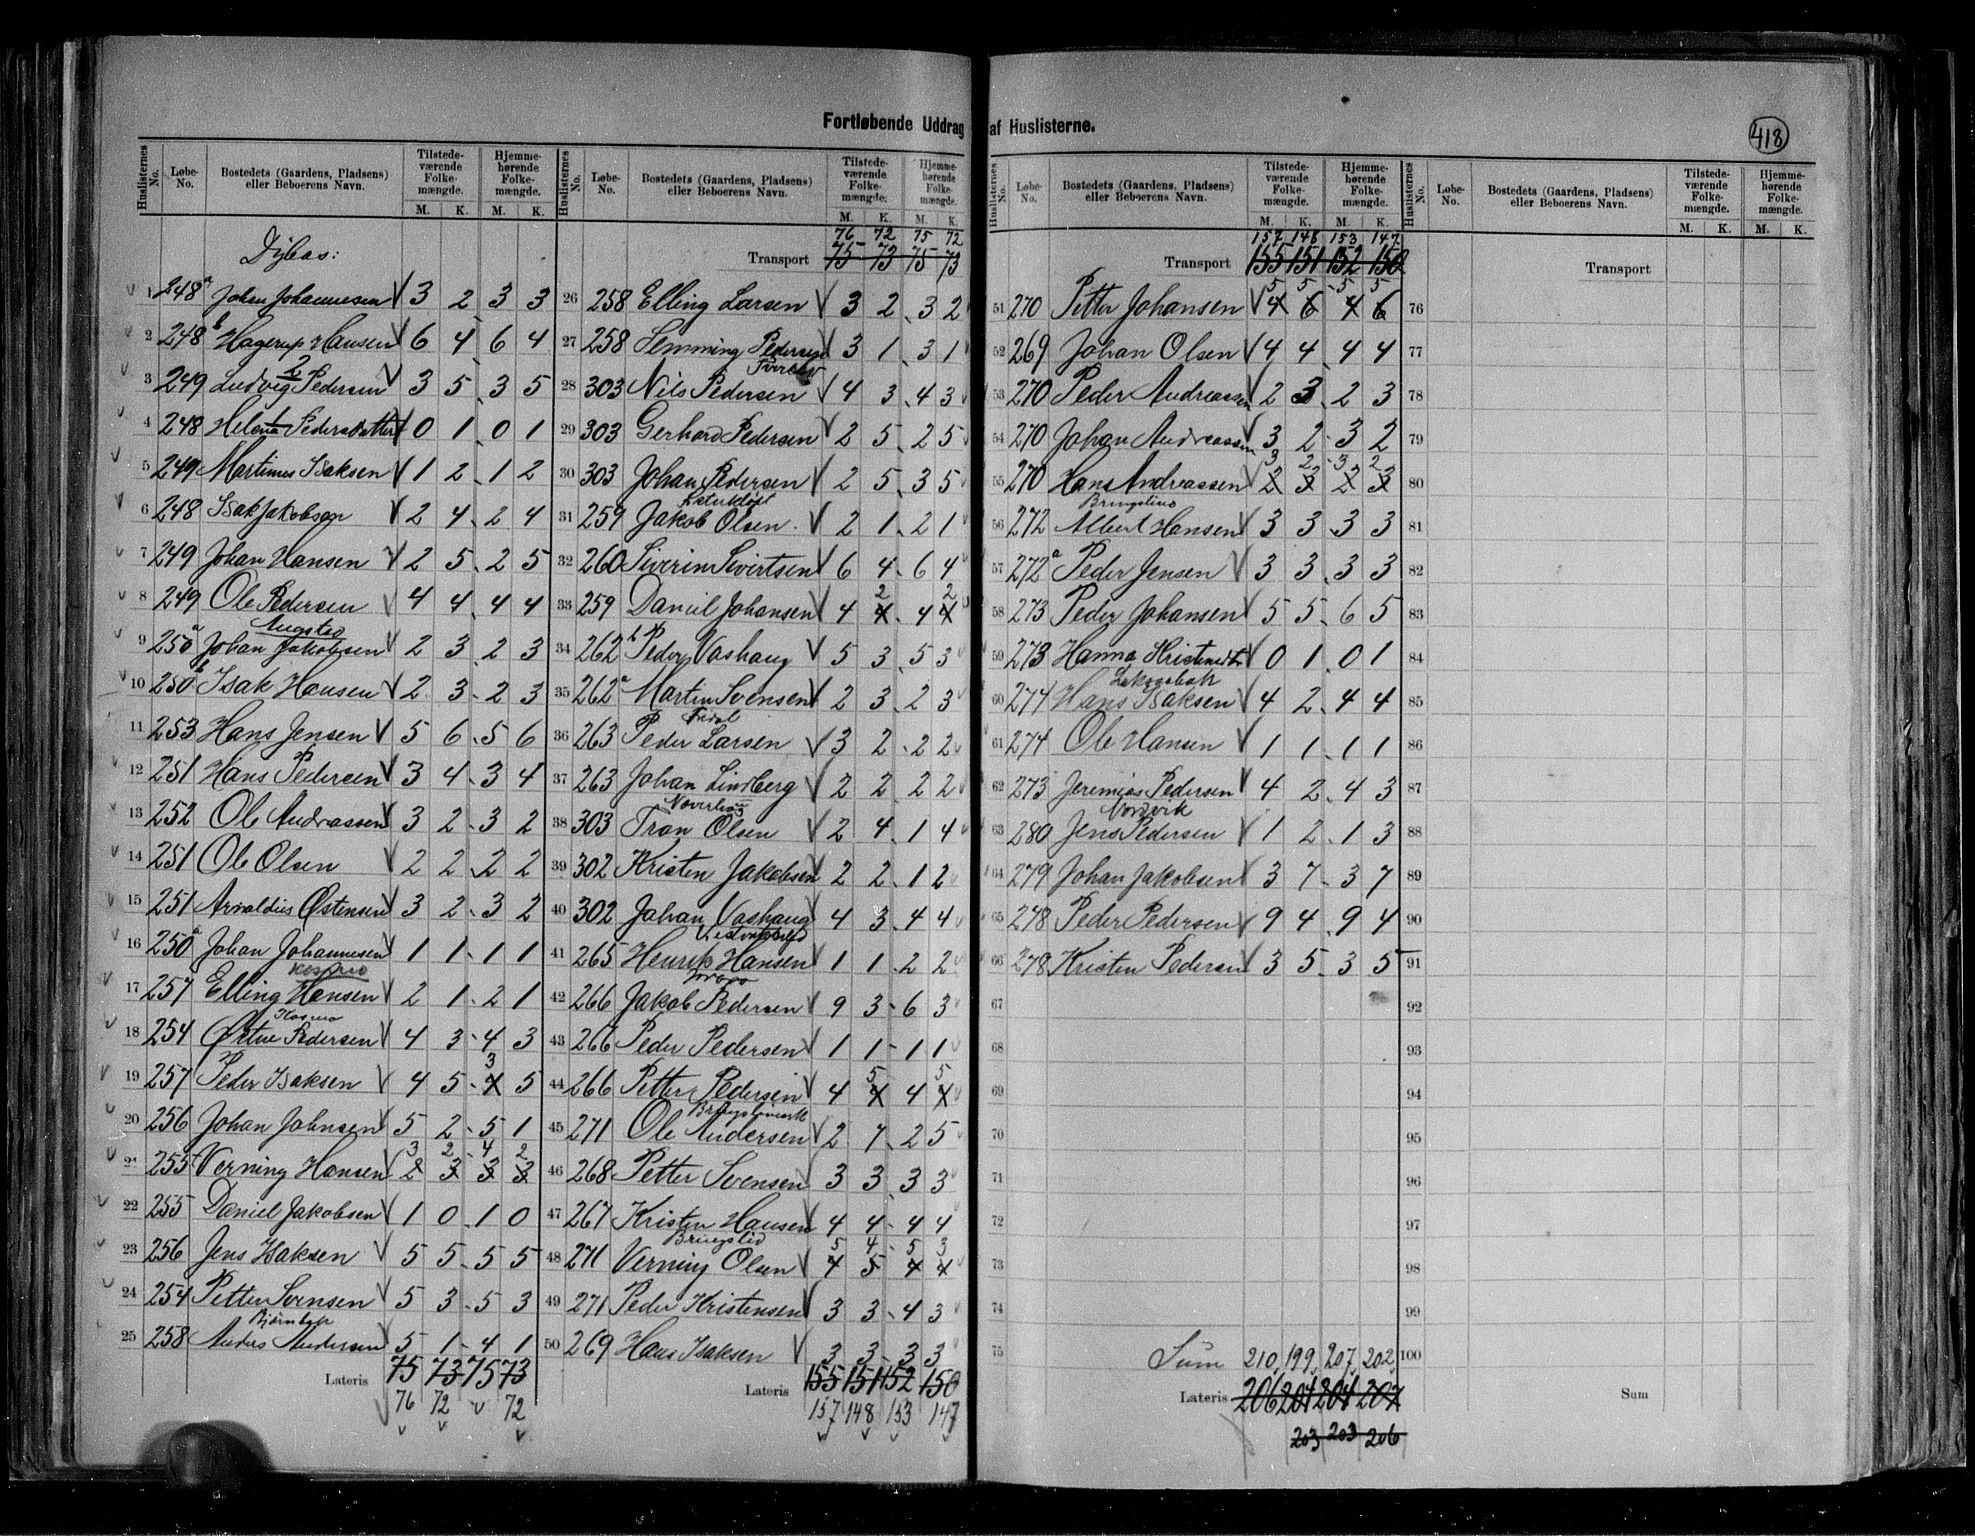 Fortløbende Uddrag af Huslisterne.
418
Huslisternes No. Løbe-No. Bostedets (Gaardens, Pladsens) eller Beboerens Navn. Tilstedeværende Folkemængde. M. K. Hjemmehørende Folkemængde. M. K.
1 248a Johan Johannesen V 3 2 3 3
2 248b Hagerup Hansen V 6 4 6 4
3 249 Ludvig Pedersen V 3 5 3 5
4 248 Helena Pedersdatter V 0 1 0 1
5 249 Martinus Isaksen V 1 2 1 2
6 248 Isak Jakobsen V 2 4 2 4
7 249 Johan Hansen V 2 5 2 5
8 249 Ole Pedersen V 4 4 4 4
9 250a Johan Jakobsen V 2 3 2 3
10 250b Isak Hansen V 2 3 2 3
11 253 Hans Jensen V 5 6 5 6
12 251 Hans Pedersen V 3 4 3 4
13 252 Ole Andreassen V 3 2 3 2
14 251 Ole Olsen V 2 2 2 2
15 251 Arnoldus Østensen V 3 2 3 2
16 250a Johan Johannesen V 1 1 1 1
17 257 Elling Hansen V 2 1 2 1
Kosmo
18 254 Østen Pedersen V 4 3 4 3
3
19 257 Peder Isaksen V 4 5 4 5
20 256 Johan Johnsen V 5 2 5 1
3 2 4 2
21 255 Verning Hansen V 2 3 3 3
22 255 Daniel Jakobsen V 1 0 1 0
23 256 Jens Isaksen V 5 5 5 5
24 254 Petter Svensen V 5 3 5 3
Bjørnbak
25 258 Anders Andersen V 5 1 4 1
Lateris 75 73 75 73
76 72 V 72
Huslisternes No. Løbe-No. Bostedets (Gaardens, Pladsens) eller Beboerens Navn. Tilstedeværende Folkemængde. M. K. Hjemmehørende Folkemængde. M. K.
76 72 75 72
Transport 75 73 75 73
26 258 Elling Larsen V 3 2 3 2
27 258 Lemming Pedersen V 3 1 3 1
28 303 Nils Pedersen V 4 3 4 3
29 303 Gerhard Pedersen V 2 5 2 5
30 303 Johan Pedersen V 2 5 3 5
31 259 Jakob Olsen V 2 1 2 1
32 260 Siverin Sivirtsen V 6 4 6 4
2 2
33 259 Daniel Johansen V 4 4 4 4
34 262b Peder Vashaug V 5 3 5 3
35 262a Martin Svensen V 2 3 2 3
36 263 Peder Larsen V 3 2 2 2
37 263 Johan Lindberg V 2 2 2 2
38 303 Tron Olsen V 2 4 1 4
39 302 Kristen Jakobsen V 2 2 1 2
40 302 Johan Vashaug V 4 3 4 4
41 265 Henrik Hansen V 1 1 2 2
42 266 Jakob Pedersen V 9 3 6 3
43 266 Peder Pedersen V 1 1 1 1
5 5
44 266 Petter Pedersen V 4 4 4 4
45 271 Ole Andersen V 2 7 2 5
46 268 Petter Svensen V 3 3 3 3
47 267 Kristen Hansen 4 4 4 4
Bringslid
5 4 5 3
48 271 Verning Olsen V 4 5 4 4
49 271 Peder Kristensen V 3 3 4 3
50 269 Hans Isaksen V 3 3 3 3
Lateris 155 151 152 150
157 148 153 147
Huslisternes No. Løbe-No. Bostedets (Gaardens, Pladsens) eller Beboerens Navn. Tilstedeværende Folkemængde. M. K. Hjemmehørende Folkemængde. M. K.
157 148 153 147
Transport 155 151 152 150
5 5 5 5
51 270 Petter Johansen V 4 6 4 6
52 269 Johan Olsen V 4 4 4 4
53 270 Peder Andreassen V 2 3 2 3
54 270 Johan Andreassen 3 2 3 2
3 2 3 2
55 270 Hans Andreassen V 2 3 2 3
56 272 Albert Hansen V 3 3 3 3
57 272a Peder Jensen V 3 3 3 3
58 273 Peder Johansen V 5 5 6 5
59 273 Hanna V 0 1 0 1
60 274 Hans Isaksen V 4 2 4 4
61 274 Ole Hansen V 1 1 1 1
62 273 Jeremias Pedersen V 4 2 4 3
Norvik
63 280 Jens Pedersen V 1 2 1 3
64 279 Johan Jakobsen V 3 7 3 7
65 278 Peder Pedersen V 9 4 9 4
66 278 Kristen Pedersen V 3 5 3 5
67
68
69
70
71
72
73
74
75
Sum 210 199 207 202
Lateris 206 204 204 207
203 203 206
Huslisternes No. Løbe-No. Bostedets (Gaardens, Pladsens) eller Beboerens Navn. Tilstedeværende Folkemængde. M. K. Hjemmehørende Folkemængde. M. K.
Transport
76
77
78
79
80
81
82
83
84
85
86
87
88
89
90
91
92
93
94
95
96
97
98
99
100
Sum